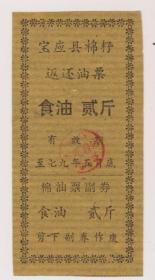 宝应县棉籽
返还油票
食油 贰斤
有效期
至七九年五月底
棉油票副券
食油 贰斤
剪下副券作废